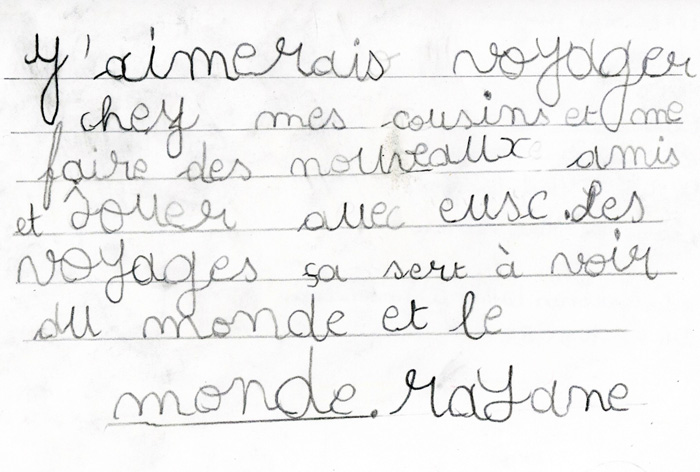 J'aimerais voyager
chez mes cousins et me
faire des nouveaux amis
et jouer avec eusc. Les
voyages ça sert à voir
du monde et le
monde. rayane